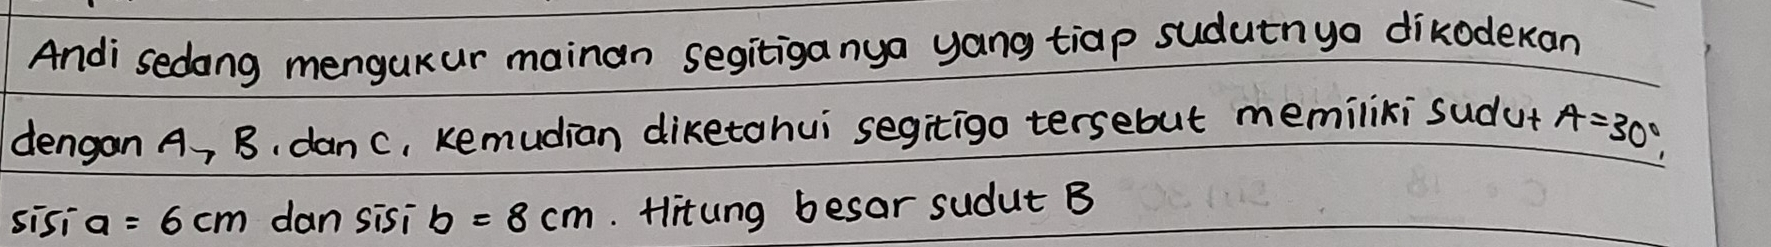 Andi sedang mengukur mainan segitiganya yang tiap sudutnya dikodekan
dengan A, B, dan C, kemudian diketahui segitiga tersebut memiliki sudut A=30°,
sisi a = 6 cm dan sisi b = 8 cm. Hitung besar sudut B